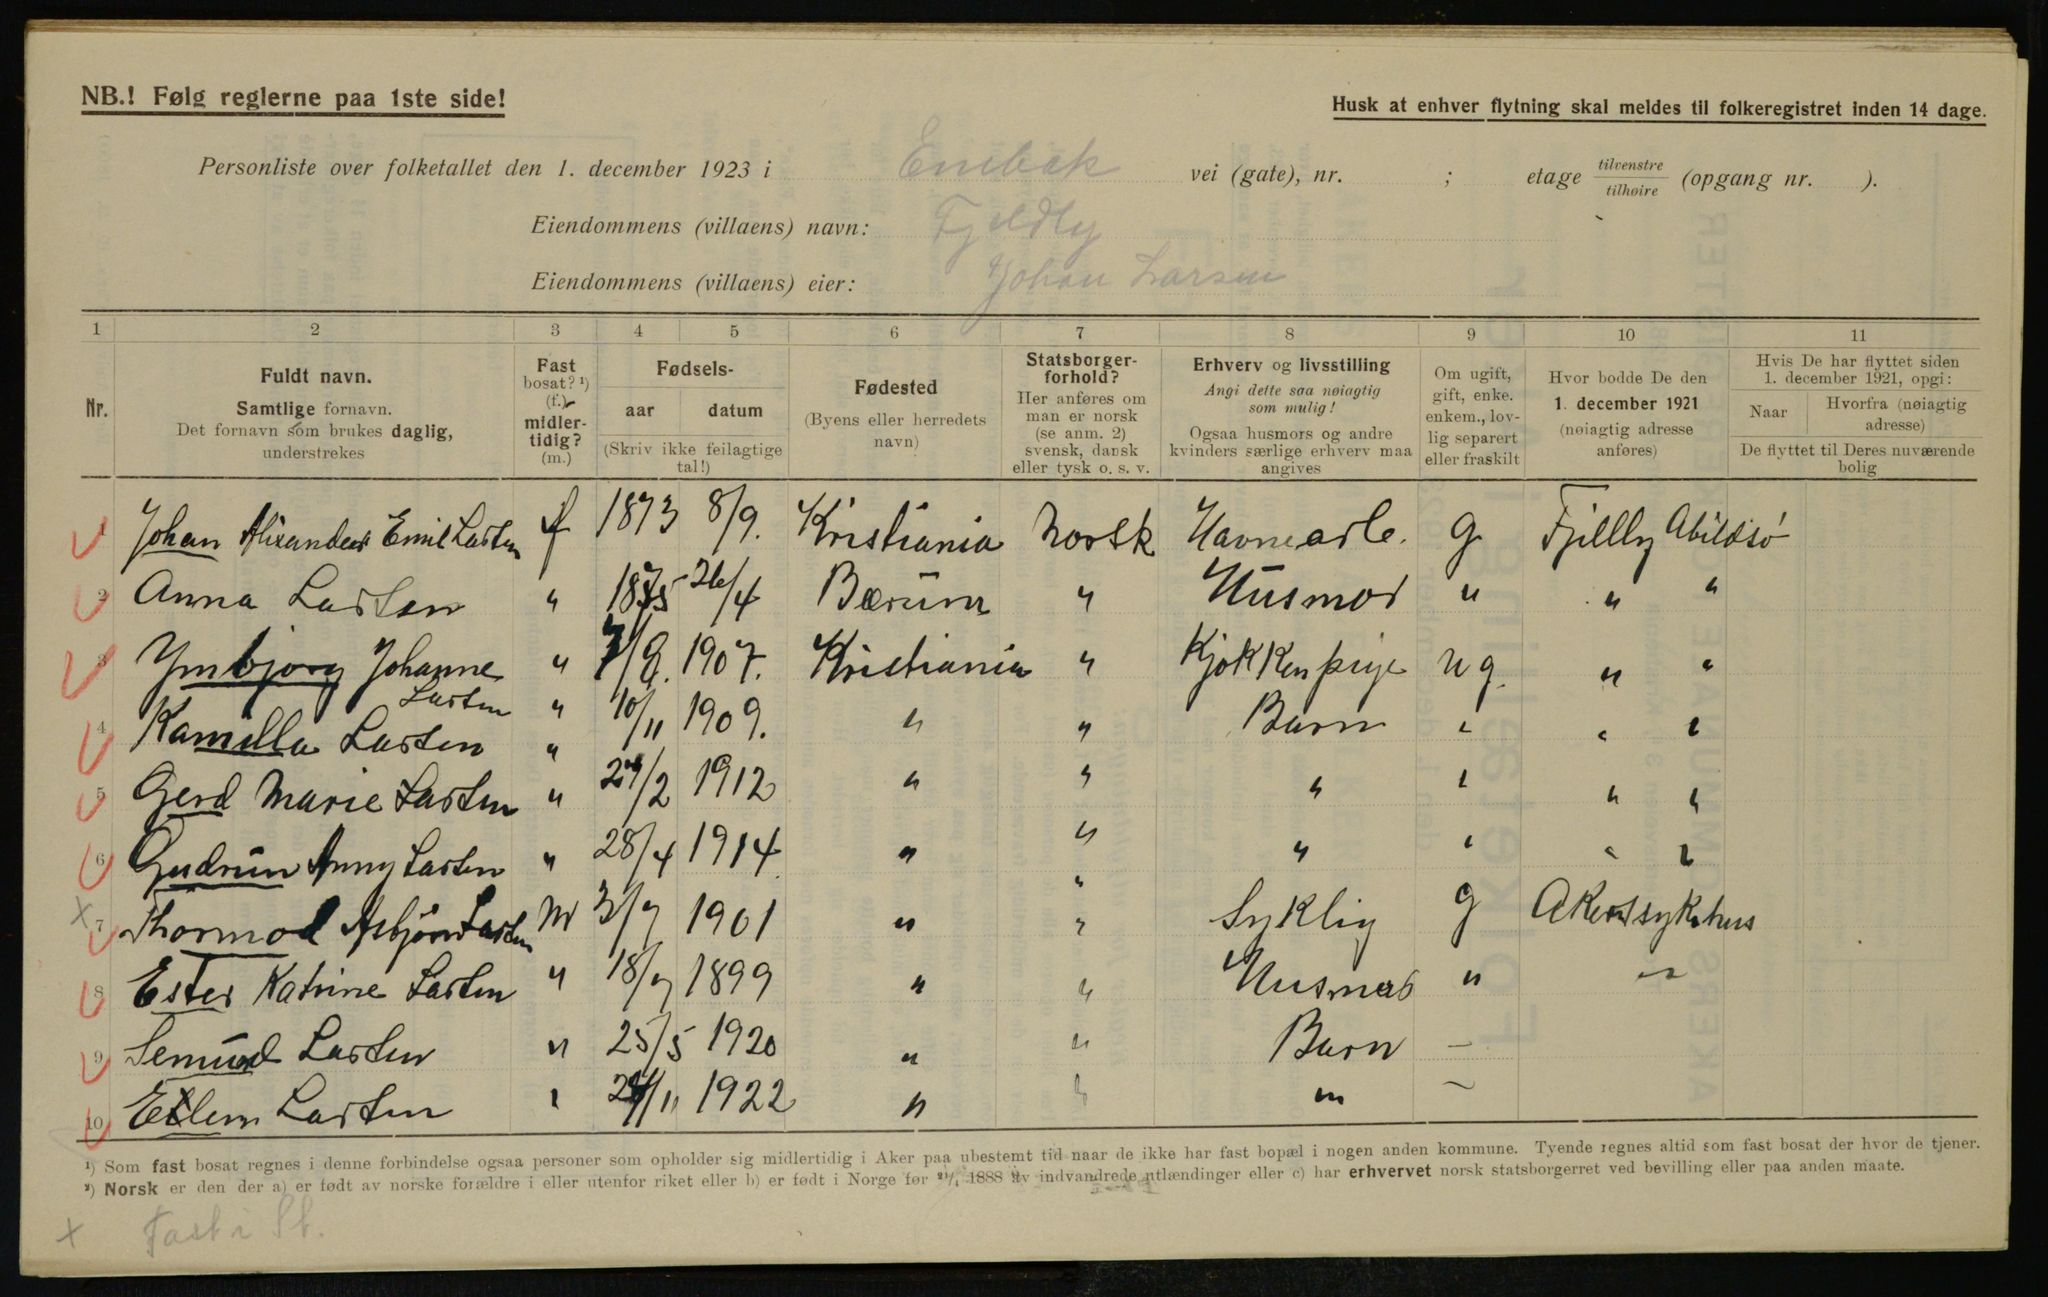 NB.! Følg reglerne paa 1ste side!
Husk at enhver flytning skal meldes til folkeregistret inden 14 dage.
Personliste over folketallet den 1. december 1923 i Enebak vei (gate), nr. ; etage tilvenstre tilhøire (opgang nr. ).
Eiendommens (villaens) navn: Fjeldly
Eiendommens (villaens) eier: Johan Larsen
1 2 3 4 5 6 7 8 9 10 11
Nr.
Fuldt navn.
Samtlige fornavn.
Det fornavn som brukes daglig,
understrekes
Fast
bosat? ¹)
(f.)
midler-
tidig?
(m.)
Fødsels-
aar datum
(Skriv ikke feilagtige
tal!)
Fødested
(Byens eller herredets
navn)
Statsborger-
forhold?
Her anføres om
man er norsk
(se anm. 2)
svensk, dansk
eller tysk o. s. v.
Erhverv og livsstilling
Angi dette saa nøiagtig
som mulig!
Ogsaa husmors og andre
kvinders særlige erhverv maa
angives
Om ugift,
gift, enke.
enkem., lov-
lig separert
eller fraskilt
Hvor bodde De den
1. december 1921
(nøiagtig adresse
anføres)
Hvis De har flyttet siden
1. december 1921, opgi:
Naar Hvorfra (nøiagtig
adresse)
De flyttet til Deres nuværende
bolig
1 Johan Alixander Emil Larsen f 1873 8/9. Kristiania Norsk Havnearb. g Fjellly Abildsö
2 Anna Larsen " 1875 26/4 Bærum " Husmor " " "
3 Ymbjorg Johanne Larsen " 7/8. 1907. Kristiania " Kjøkkenpige ug. " "
4 Kamilla Larsen " 10/11 1909. " " Barn " " "
5 Gerd Marie Larsen " 24/2 1912 " " " " " "
6 Gudrun Anny Larsen " 28/4 1914 " " " " " "
7 Thormod Asbjörn Larsen M 3/7 1901 " " Syklig g Akers sykehus
8 Ester Katrine Larsen " 18/7 1899 " " Husmor " "
9 Semund Larsen " 25/5 1920 " " Barn —
10 Larsen " 24/11 1922 " " " —
¹) Som fast bosat regnes i denne forbindelse ogsaa personer som opholder sig midlertidig i Aker paa ubestemt tid naar de ikke har fast bopæl i nogen anden kommune. Tyende regnes altid som fast bosat der hvor de tjener.
²) Norsk er den der a) er født av norske forældre i eller utenfor riket eller b) er født i Norge før 21/4 1888 av indvandrede utlændinger eller c) har erhvervet norsk statsborgerret ved bevilling eller paa anden maate.
x Fast i St.